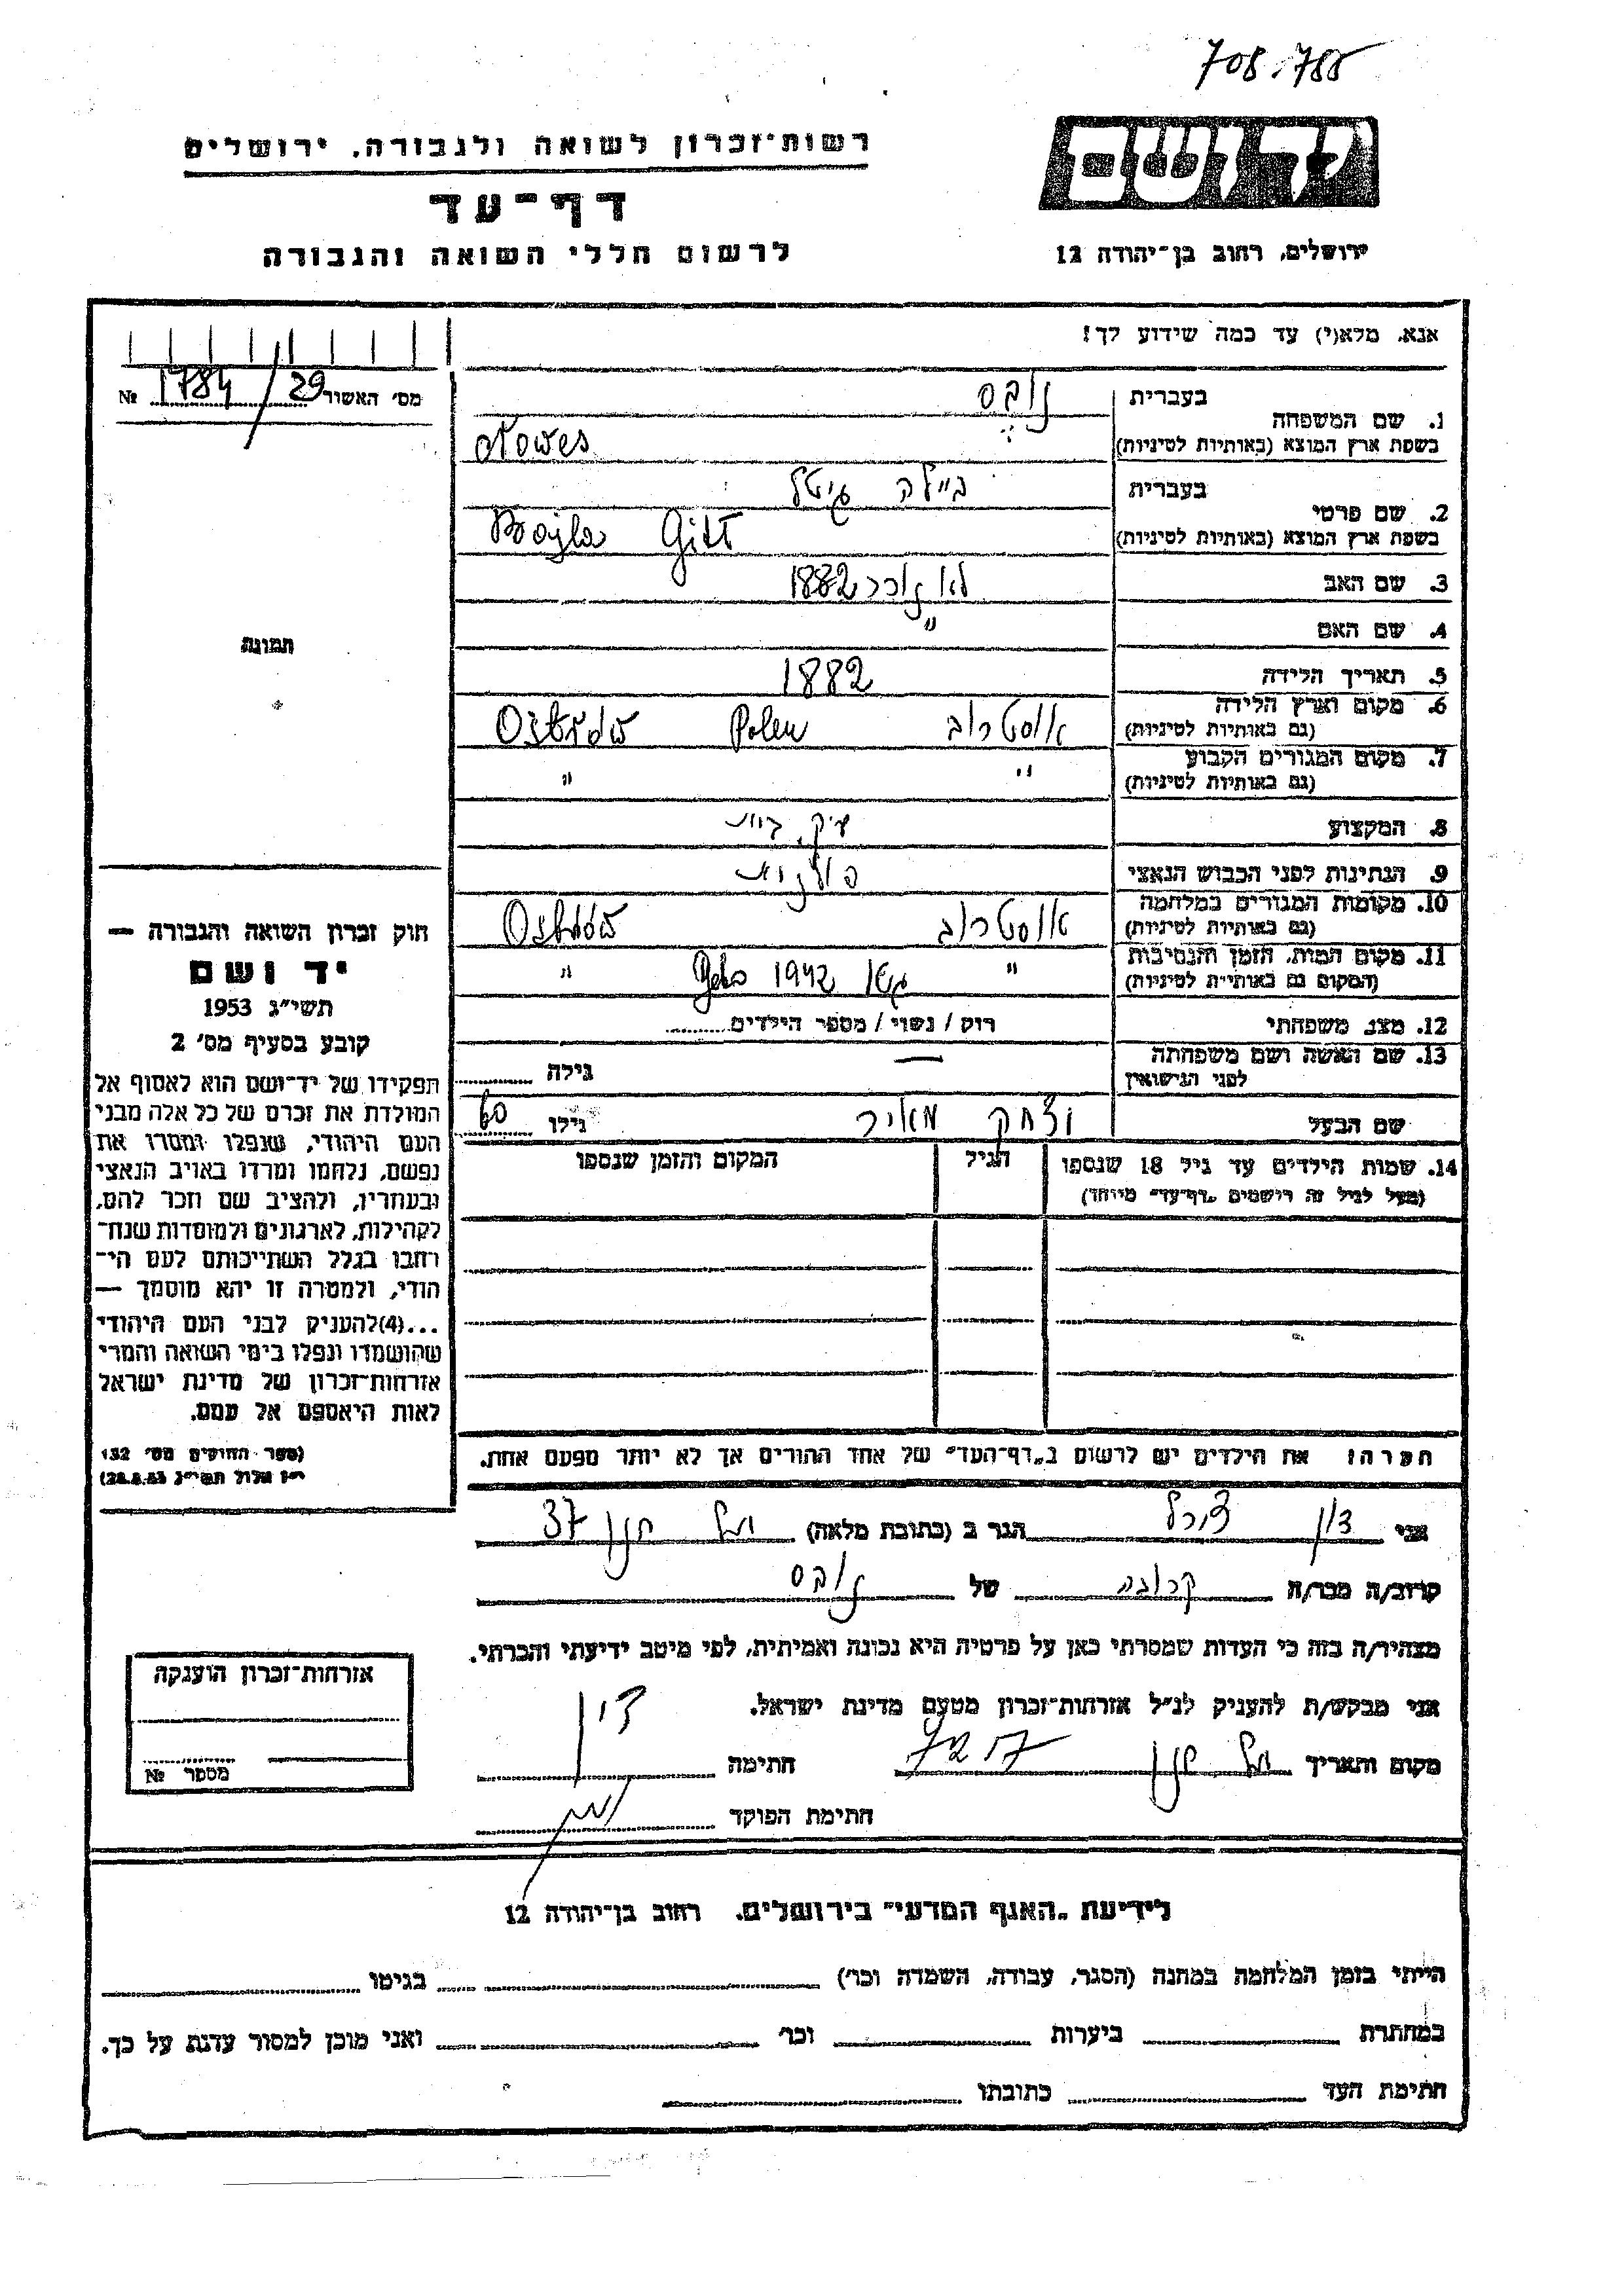 708.788
ידושם
רשות־זכרון לשואה ולגבורה. ירושלים
דף־עד
לרשום חללי השואה והגבורה
ירושלים, רחוב בן־יהודה 12
אנא, מלא(י) עד כמה שידוע לך!
מס׳ האשור 1784/29 №
1. שם המשפחה
בעברית נובס
בשפת ארץ המוצא (באותיות לטיניות) Nowes
2. שם פרטי
בעברית ביילה גיטל
בשפת ארץ המוצא (באותיות לטיניות) Bajla Gitl
3. שם האב לא זוכר 1882
4. שם האם "
5. תאריך הלידה 1882
6. מקום וארץ הלידה (גם באותיות לטיניות) אוסטרוב Polen Ostrów
7. מקום המגורים הקבוע (גם באותיות לטיניות) " "
8. המקצוע עק. בית
9. הנתינות לפני הכבוש הנאצי פולנית
10. מקומות המגורים במלחמה (גם באותיות לטיניות) אוסטרוב Ostrów
11. מקום המות, הזמן והנסיבות (המקום גם באותיות לטיניות) " 1942 "
12. מצב משפחתי רוק / נשוי / מספר הילדים
13. שם האשה ושם משפחתה לפני הנישואין — גילה
שם הבעל יצחק מאיר גילו 60
14. שמות הילדים עד גיל 18 שנספו הגיל המקום והזמן שנספו
(מעל לגיל זה רושמים „דף־עד״ מיוחד)
תמונה
חוק זכרון השואה והגבורה —
יד ושם
תשי״ג 1953
קובע בסעיף מס׳ 2
תפקידו של יד־ושם הוא לאסוף אל
המולדת את זכרם של כל אלה מבני
העם היהודי, שנפלו ומסרו את
נפשם, נלחמו ומרדו באויב הנאצי
ובעוזריו, ולהציב שם וזכר להם,
לקהילות, לארגונים ולמוסדות שנח־
רבו בגלל השתייכותם לעם הי־
הודי, ולמטרה זו יהא מוסמך —
...(4)להעניק לבני העם היהודי
שהושמדו ונפלו בימי השואה והמרי
אזרחות־זכרון של מדינת ישראל
לאות היאספם אל עמם.
(ספר החוקים מס׳ 132
י״ז אלול תשי״ג 28.8.53)
הערה! את הילדים יש לרשום ב„דף־העד״ של אחד ההורים אך לא יותר מפעם אחת.
אני הגר ב (כתובת מלאה) 37
קרוב/ה מכר/ה קרובה של נובס
מצהיר/ה בזה כי העדות שמסרתי כאן על פרטיה היא נכונה ואמיתית, לפי מיטב ידיעתי והכרתי.
אני מבקש/ת להעניק לנ״ל אזרחות־זכרון מטעם מדינת ישראל.
מקום ותאריך חתימה
חתימת הפוקד
אזרחות־זכרון הוענקה
מספר №
לידיעת „האגף המדעי״ בירושלים. רחוב בן־יהודה 12
הייתי בזמן המלחמה במחנה (הסגר, עבודה, השמדה וכו׳) בגיטו
במחתרת ביערות וכו׳ ואני מוכן למסור עדות על כך.
חתימת העד כתובתו